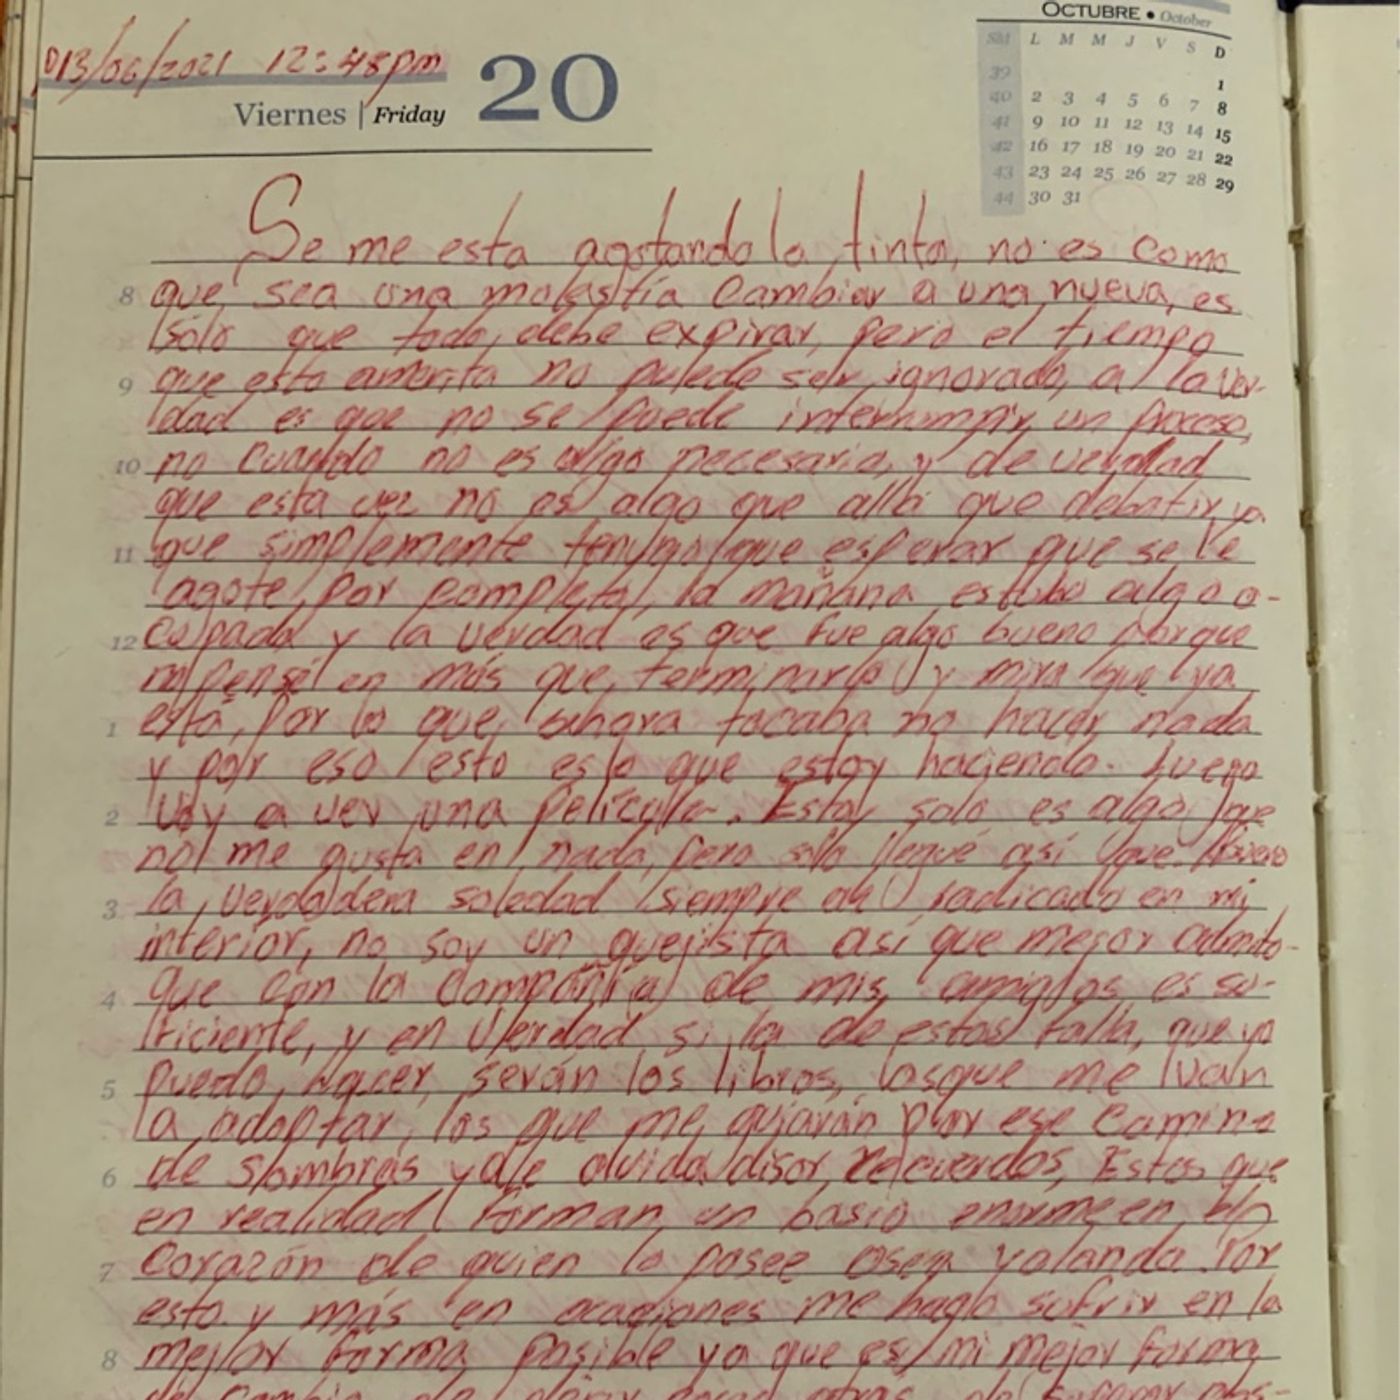 OCTUBRE • October
SM L M M J V S D
39 1
40 2 3 4 5 6 7 8
41 9 10 11 12 13 14 15
42 16 17 18 19 20 21 22
43 23 24 25 26 27 28 29
44 30 31
13/06/2021 12:48pm
Viernes | Friday 20
Se me esta agotando la tinta, no es como
8 que sea una molestía cambiar a una nueva, es
sólo que todo, debe expirar, pero el tiempo
9 que esto amerita no puede ser ignorado, a la ver-
dad es que no se puede interrumpir un proceso,
10 no cuando no es algo necesario, y de verdad
que esta vez no es algo que alla que debatir ya
11 que simplemente que esperar que se le
agote por completo, la mañana estubo algo o-
12 cupada y la verdad es que fue algo bueno porque
pensé en más que terminarlo y mira que ya
1 está, por lo que, ahora tocaba no hacer nada
y por eso esto es lo que estoy haciendo. Luego
2 voy a ver una película. Estoy solo es algo que
no me gusta en nada, pero sólo llegué así que bueno
3 la verdadera soledad siempre a radicado en mi
interior, no soy un quejista así que mejor admito
4 que con la compañía de mis amigos es su-
ficiente, y en verdad si la de estos falla, que ya
5 puedo hacer, serán los libros, los que me van
a adoptar, los que me guiarán por ese camino
6 de sombras y de olvida recuerdos, Estos que
en realidad forman un basio enorme en
7 corazón de quien lo posee osea yolanda. Por
esto y más en ocaciones me hago sofrir en la
8 mejor forma posible ya que es mi mejor forma